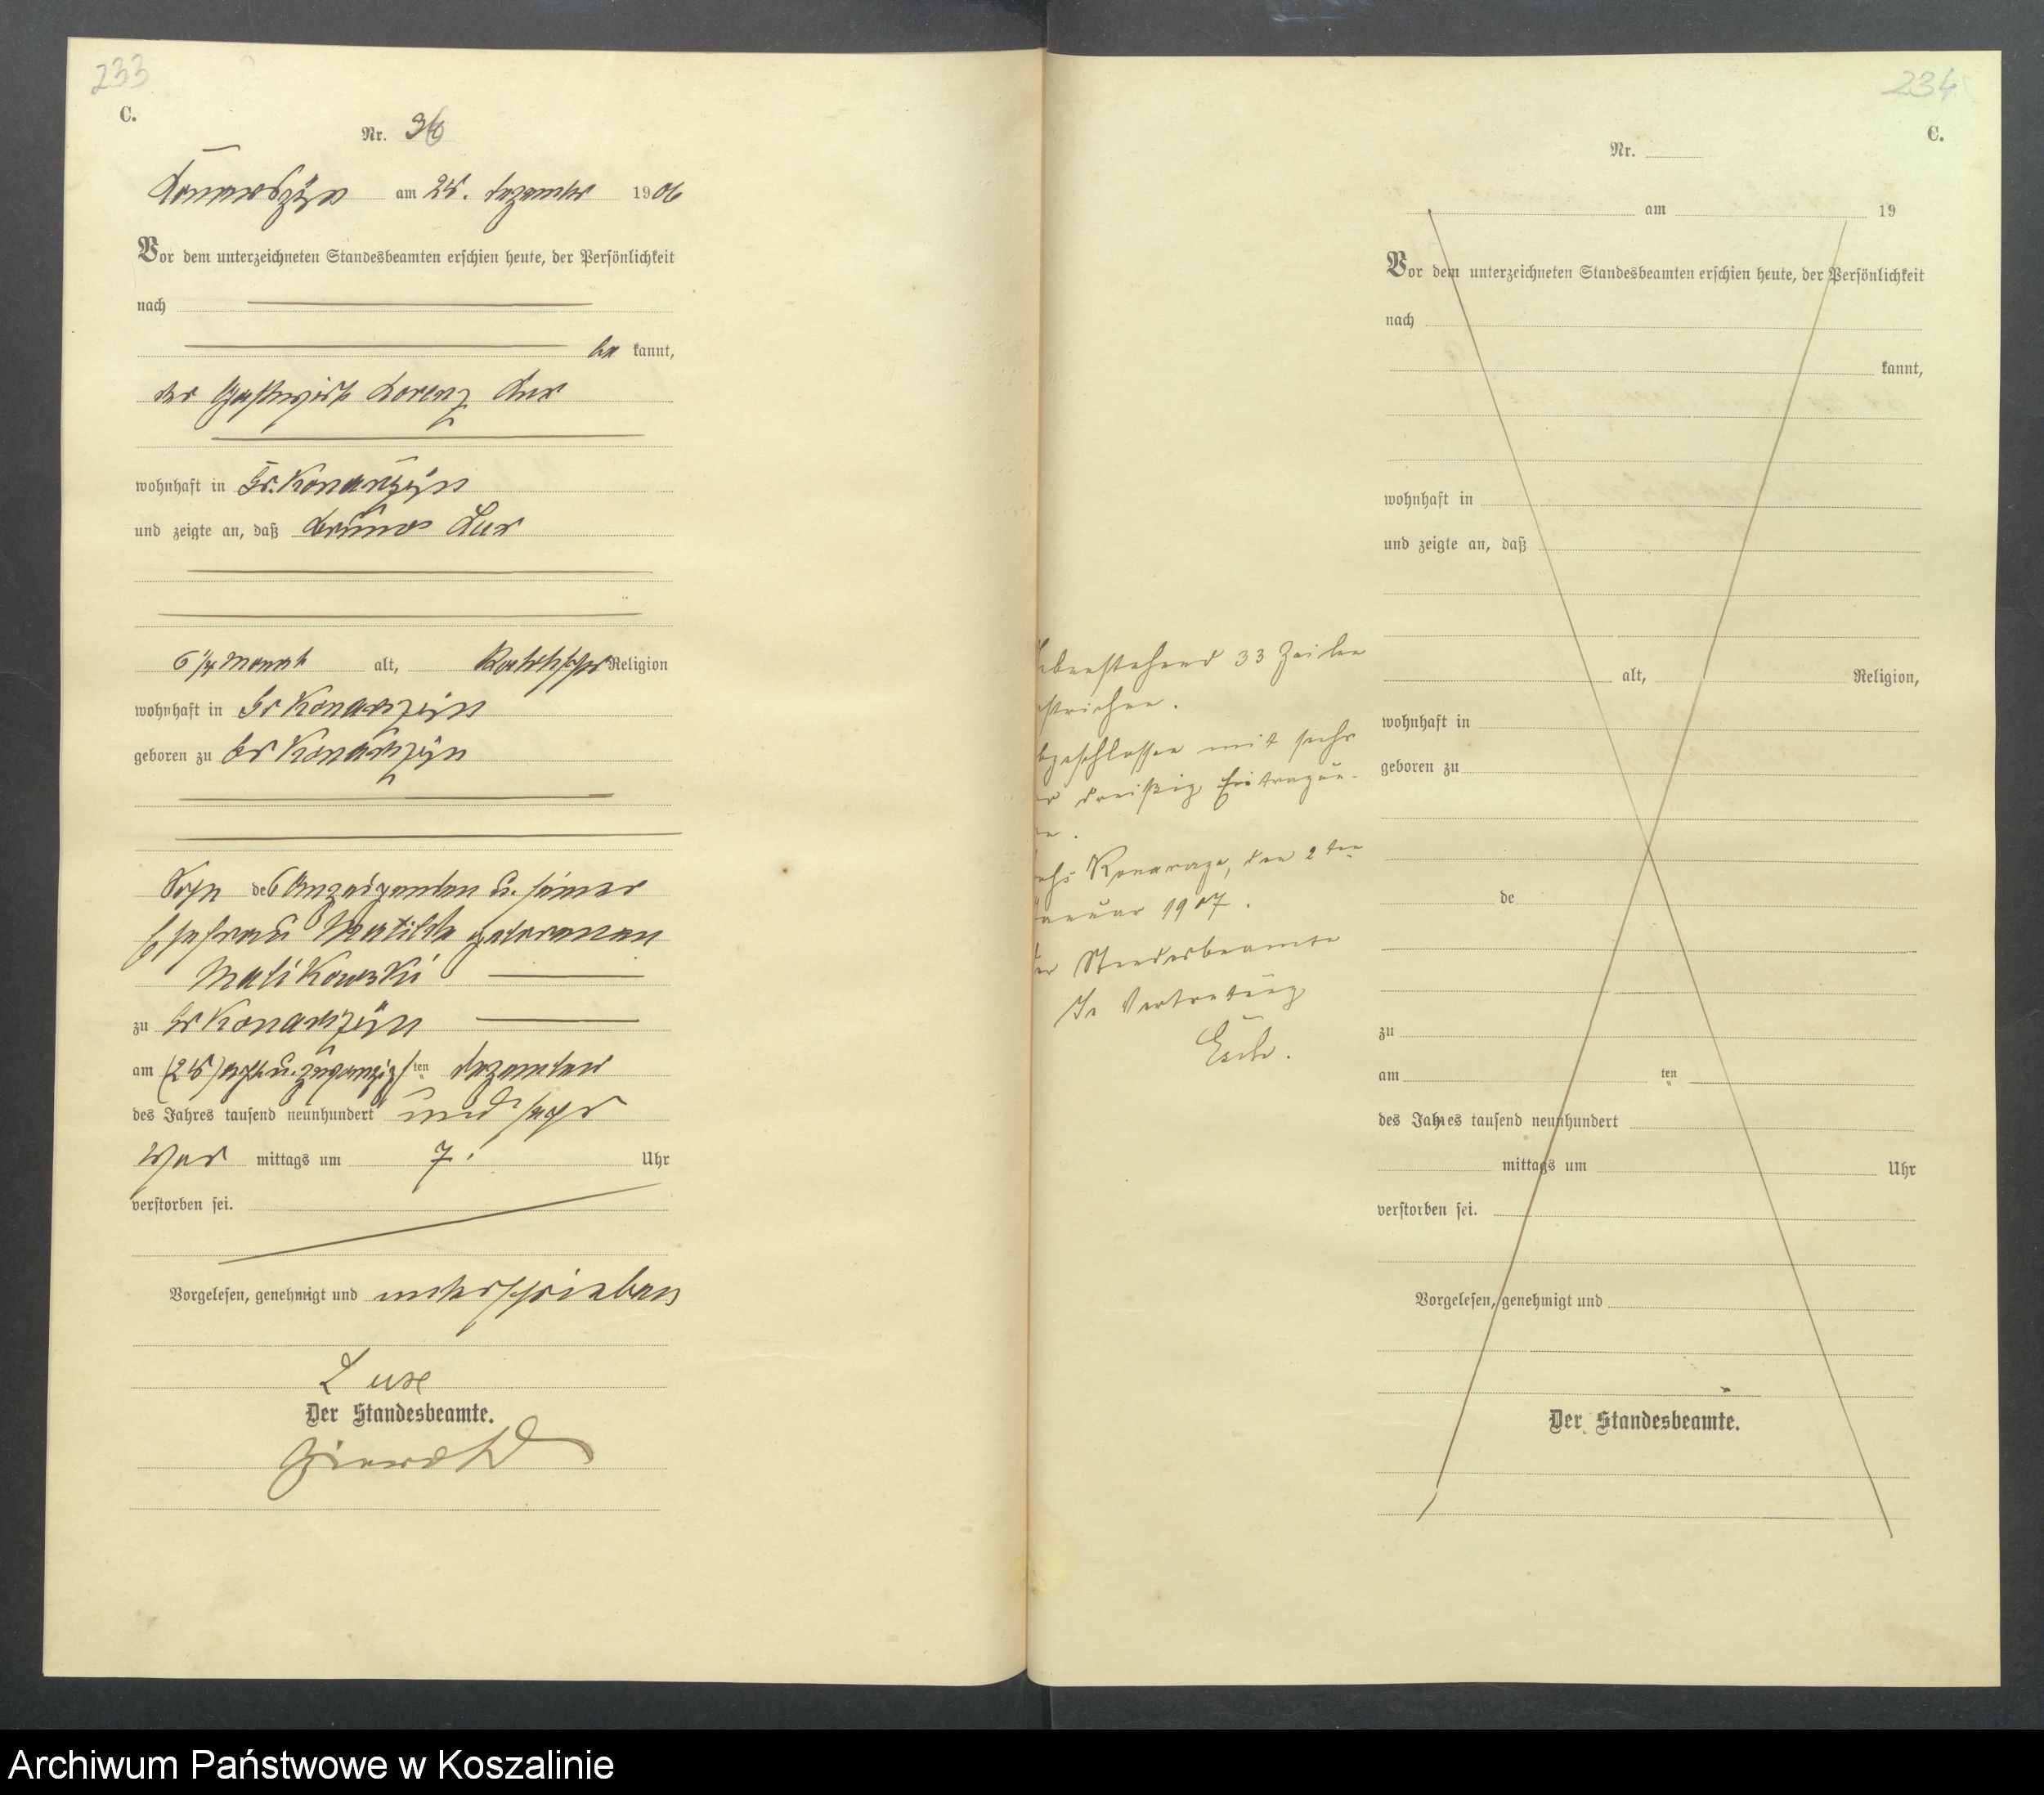 233
C.
Nr. 36
Konarszyn am 28. Dezember 1906
Vor dem unterzeichneten Standesbeamten erschien heute, der Persönlichkeit
nach
be kannt,
der Gastwirth Lorenz Lux
wohnhaft in Gr. Konarszyn
und zeigte an, daß Bruno Lux
6 1/4 Monat alt, Katholischer Religion
wohnhaft in Gr Konarszyn
geboren zu Gr Konarszyn
Sohn des Anzeigenden u. seiner
Ehefrau Matilde geborenen
Malikowski
zu Gr Konarszyn
am (28) acht u. zwanzig ten Dezember
des Jahres tausend neunhundert und sechs
Vor mittags um 7 Uhr
verstorben sei.
Vorgelesen, genehmigt und unterschrieben
Lux
Der Standesbeamte.
234
C.
Nr.
am 19
Vor dem unterzeichneten Standesbeamten erschien heute, der Persönlichkeit
nach
kannt,
wohnhaft in
und zeigte an, daß
alt, Religion,
wohnhaft in
geboren zu
de
zu
am ten
des Jahres tausend neunhundert
mittags um Uhr
verstorben sei.
Vorgelesen, genehmigt und
Der Standesbeamte.
ebenstehend 33 Zeilen
strichen.
bgeschlossen mit sechs
dreißig Eintragun-
Konarzyn, den 2 ten
Januar 1907.
er Standesbeamte
In Vertretung
Archiwum Państwowe w Koszalinie